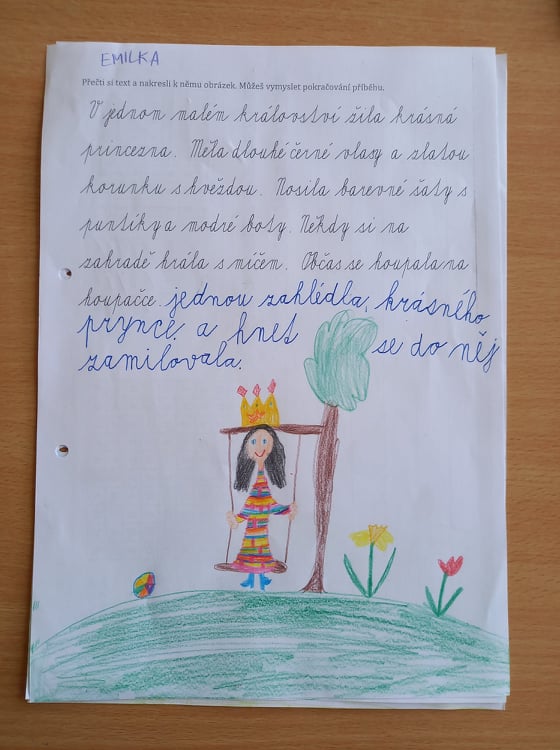 EMILKA
Přečti si text a nakresli k němu obrázek. Můžeš vymyslet pokračování příběhu.
V jednom malém království žila krásná
princezna. Měla dlouhé černé vlasy a zlatou
korunku s hvězdou. Nosila barevné šaty s
puntíky a modré boty. Někdy si na
zahradě hrála s míčem. Občas se houpala na
houpačce. jednou zahlédla, krásného
prynce. a hnet se do něj
zamilovala.